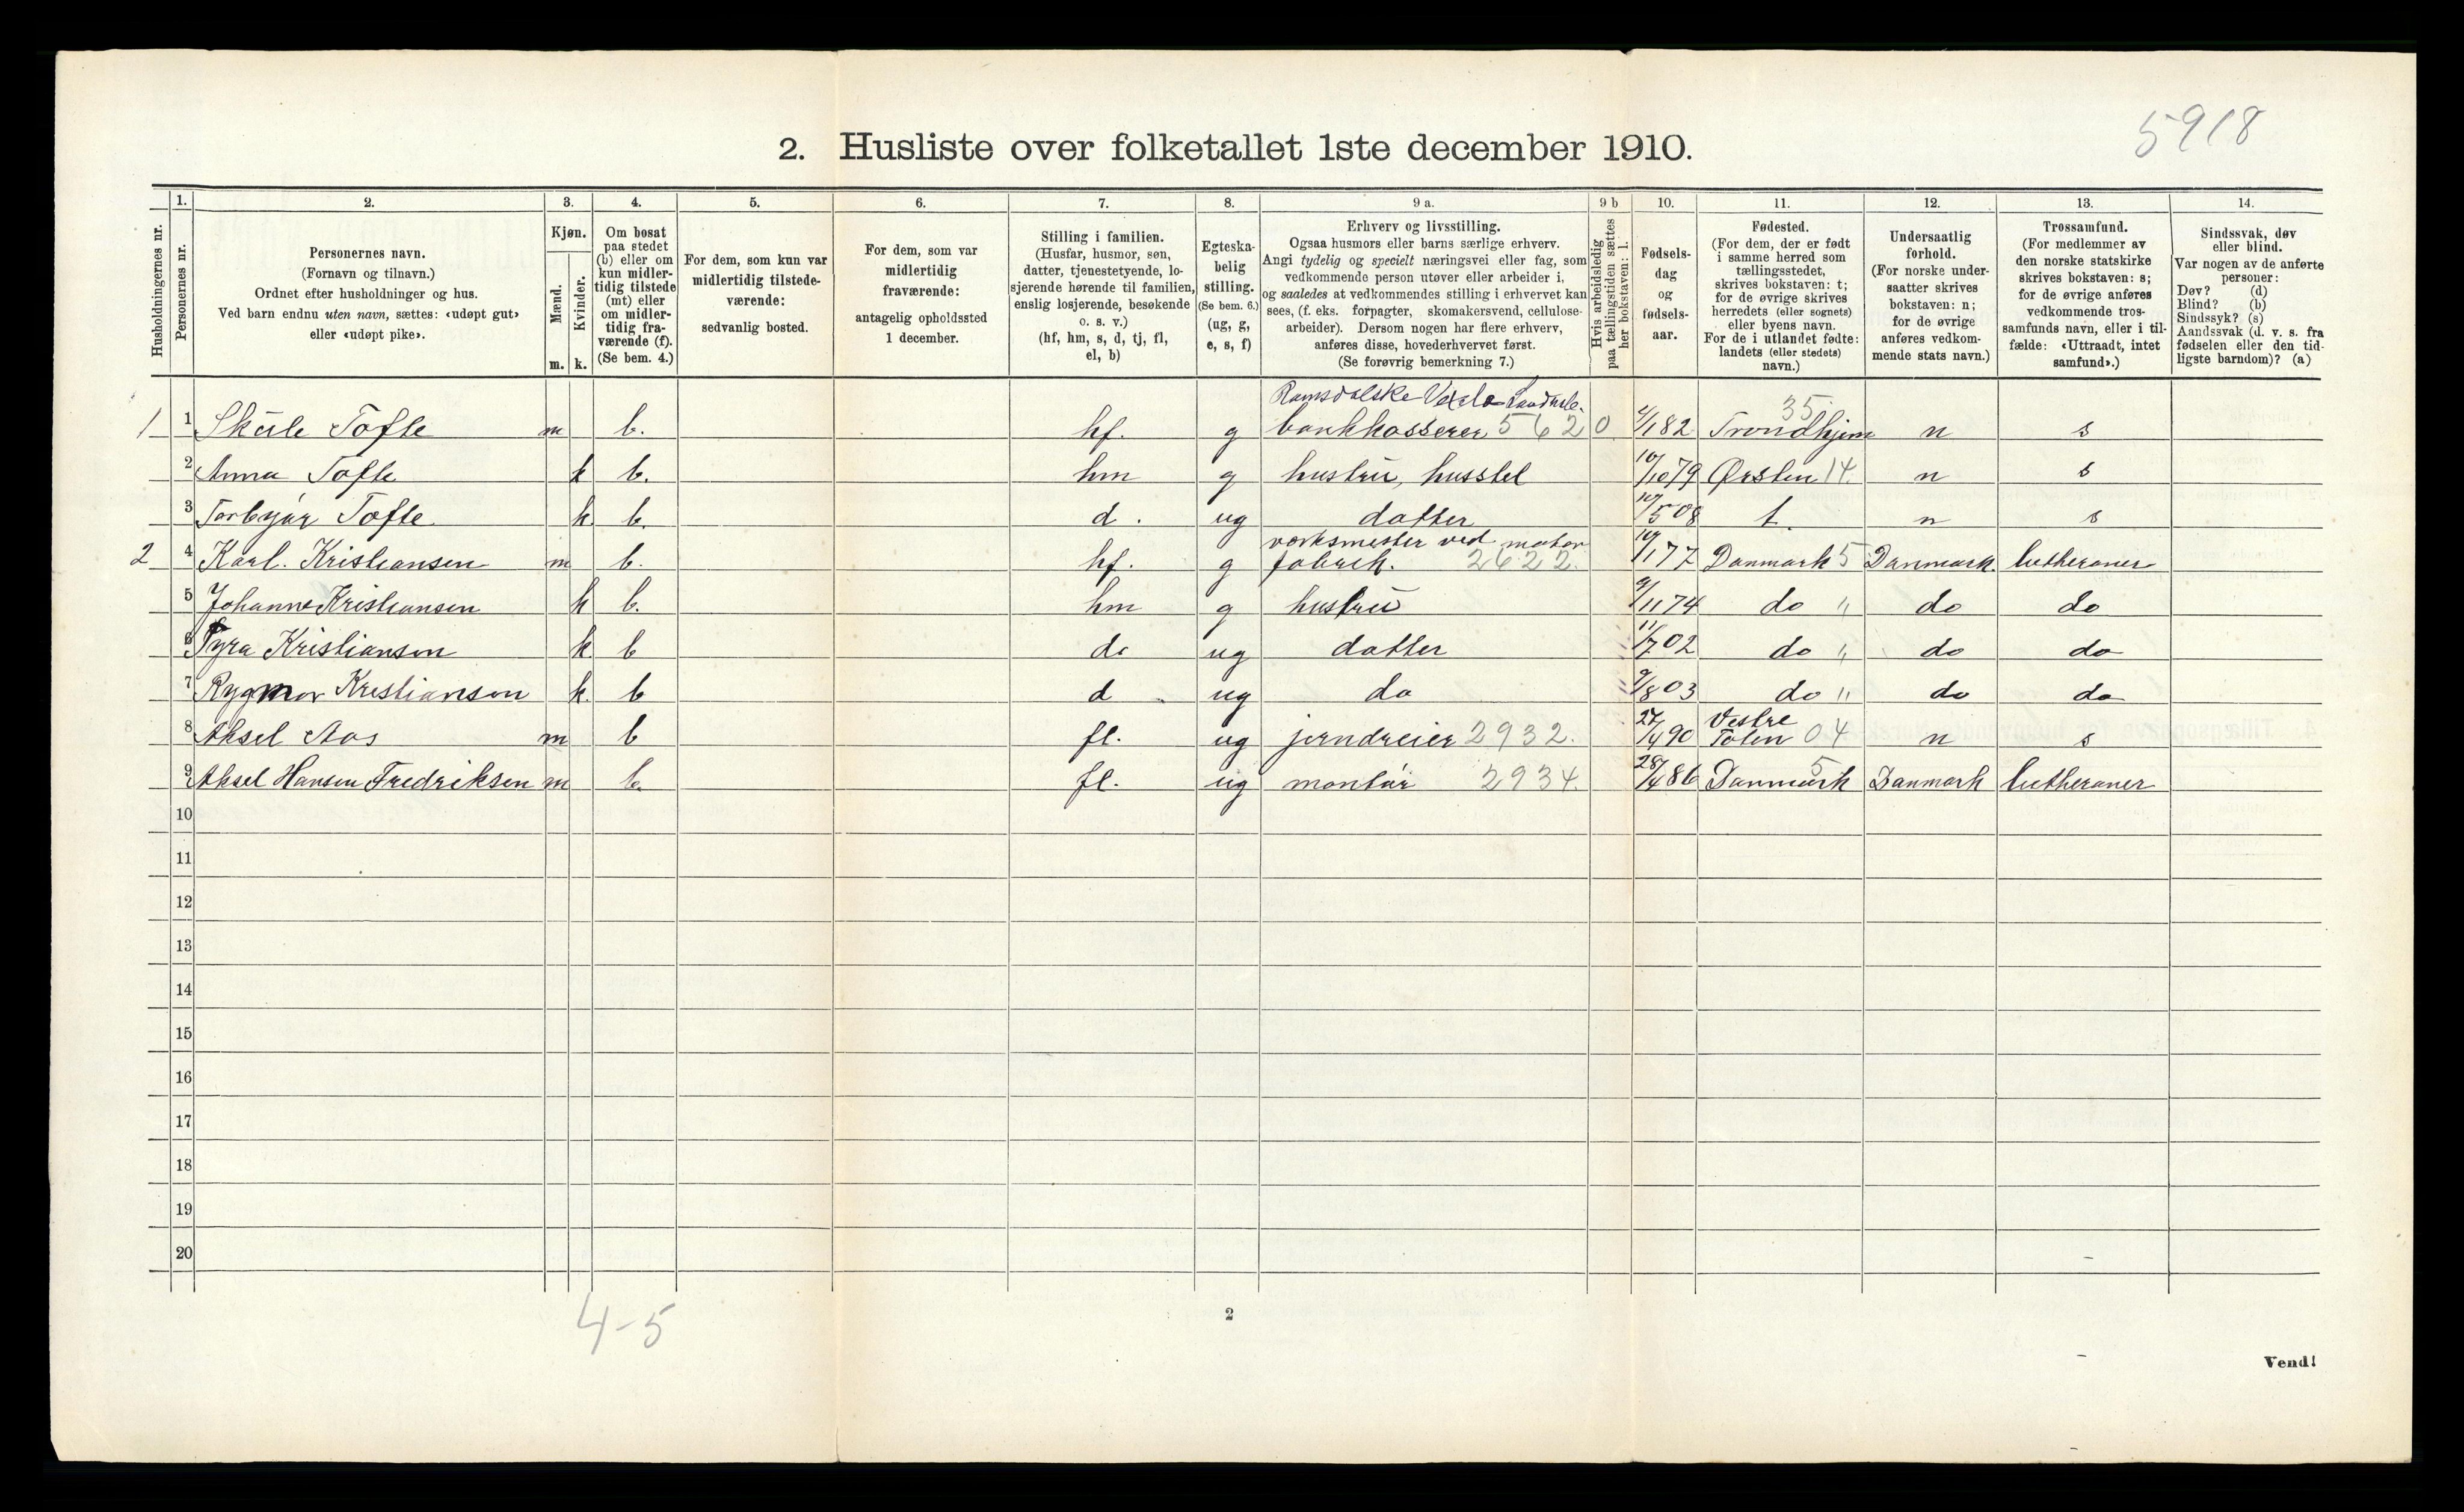 5918
2. Husliste over folketallet 1ste december 1910.
Husholdningernes nr.
1. Personernes nr.
2. Personernes navn.
(Fornavn og tilnavn.)
Ordnet efter husholdninger og hus.
Ved barn endnu uten navn, sættes: «udøpt gut»
eller «udøpt pike».
3. Kjøn.
Mænd. m.
Kvinder. k.
4. Om bosat
paa stedet
(b) eller om
kun midler-
tidig tilstede
(mt) eller
om midler-
tidig fra-
værende (f).
(Se bem. 4.)
5. For dem, som kun var
midlertidig tilstede-
værende:
sedvanlig bosted.
6. For dem, som var
midlertidig
fraværende:
antagelig opholdssted
1 december.
7. Stilling i familien.
(Husfar, husmor, søn,
datter, tjenestetyende, lo-
sjerende hørende til familien,
enslig losjerende, besøkende
o. s. v.)
(hf, hm, s, d, tj, fl,
el, b)
8. Egteska-
belig
stilling.
(Se bem. 6.)
(ug, g,
e, s, f)
9 a. Erhverv og livsstilling.
Ogsaa husmors eller barns særlige erhverv.
Angi tydelig og specielt næringsvei eller fag, som
vedkommende person utøver eller arbeider i,
og saaledes at vedkommendes stilling i erhvervet kan
sees, (f. eks. forpagter, skomakersvend, cellulose-
arbeider). Dersom nogen har flere erhverv,
anføres disse, hovederhvervet først.
(Se forøvrig bemerkning 7.)
9 b Hvis arbeidsledig
paa tællingstiden sættes
her bokstaven: l.
10. Fødsels-
dag
og
fødsels-
aar.
11. Fødested.
(For dem, der er født
i samme herred som
tællingsstedet,
skrives bokstaven: t;
for de øvrige skrives
herredets (eller sognets)
eller byens navn.
For de i utlandet fødte:
landets (eller stedets)
navn.)
12. Undersaatlig
forhold.
(For norske under-
saatter skrives
bokstaven: n;
for de øvrige
anføres vedkom-
mende stats navn.)
13. Trossamfund.
(For medlemmer av
den norske statskirke
skrives bokstaven: s;
for de øvrige anføres
vedkommende tros-
samfunds navn, eller i til-
fælde: «Uttraadt, intet
samfund».)
14. Sindssvak, døv
eller blind.
Var nogen av de anførte
personer:
Døv? (d)
Blind? (b)
Sindssyk? (s)
Aandssvak (d. v. s. fra
fødselen eller den tid-
ligste barndom)? (a)
Romsdalske Vexle- Landmb. 35
1 1 Skule Tofte m b. hf. g bankkasserer 5620 4/1 82 Trondhjem n s
2 Anna Tofte k b. hm g hustru, husstel 10/10 79 Ørsten 14 n s
3 Torbjør Tofte k b. d. ug datter 10/5 08 t. n s
verksmester ved motor
2 4 Karl. Kristiansen m b. hf. g fabrik. 2622. 10/1 77 Danmark 5 Danmark. lutheraner
5 Johanne Kristiansen k b. hm g hustru 9/11 74 do " do do
6 Tyra Kristiansen k b do ug datter 11/7 02 do " do do
7 Rygmor Kristianson k. b d ug do 9/8 03 do " do do
Vestre
8 Aksel Aas m b fl. ug jerndreier 2932. 27/4 90 Toten 04 n s
9 Aksel Hansen Fredriksen m b. fl. ug montør 2934. 28/4 86 Danmark 5 Danmark lutheraner
10
11
12
13
14
15
16
17
18
19
20
4-5
2
Vend!